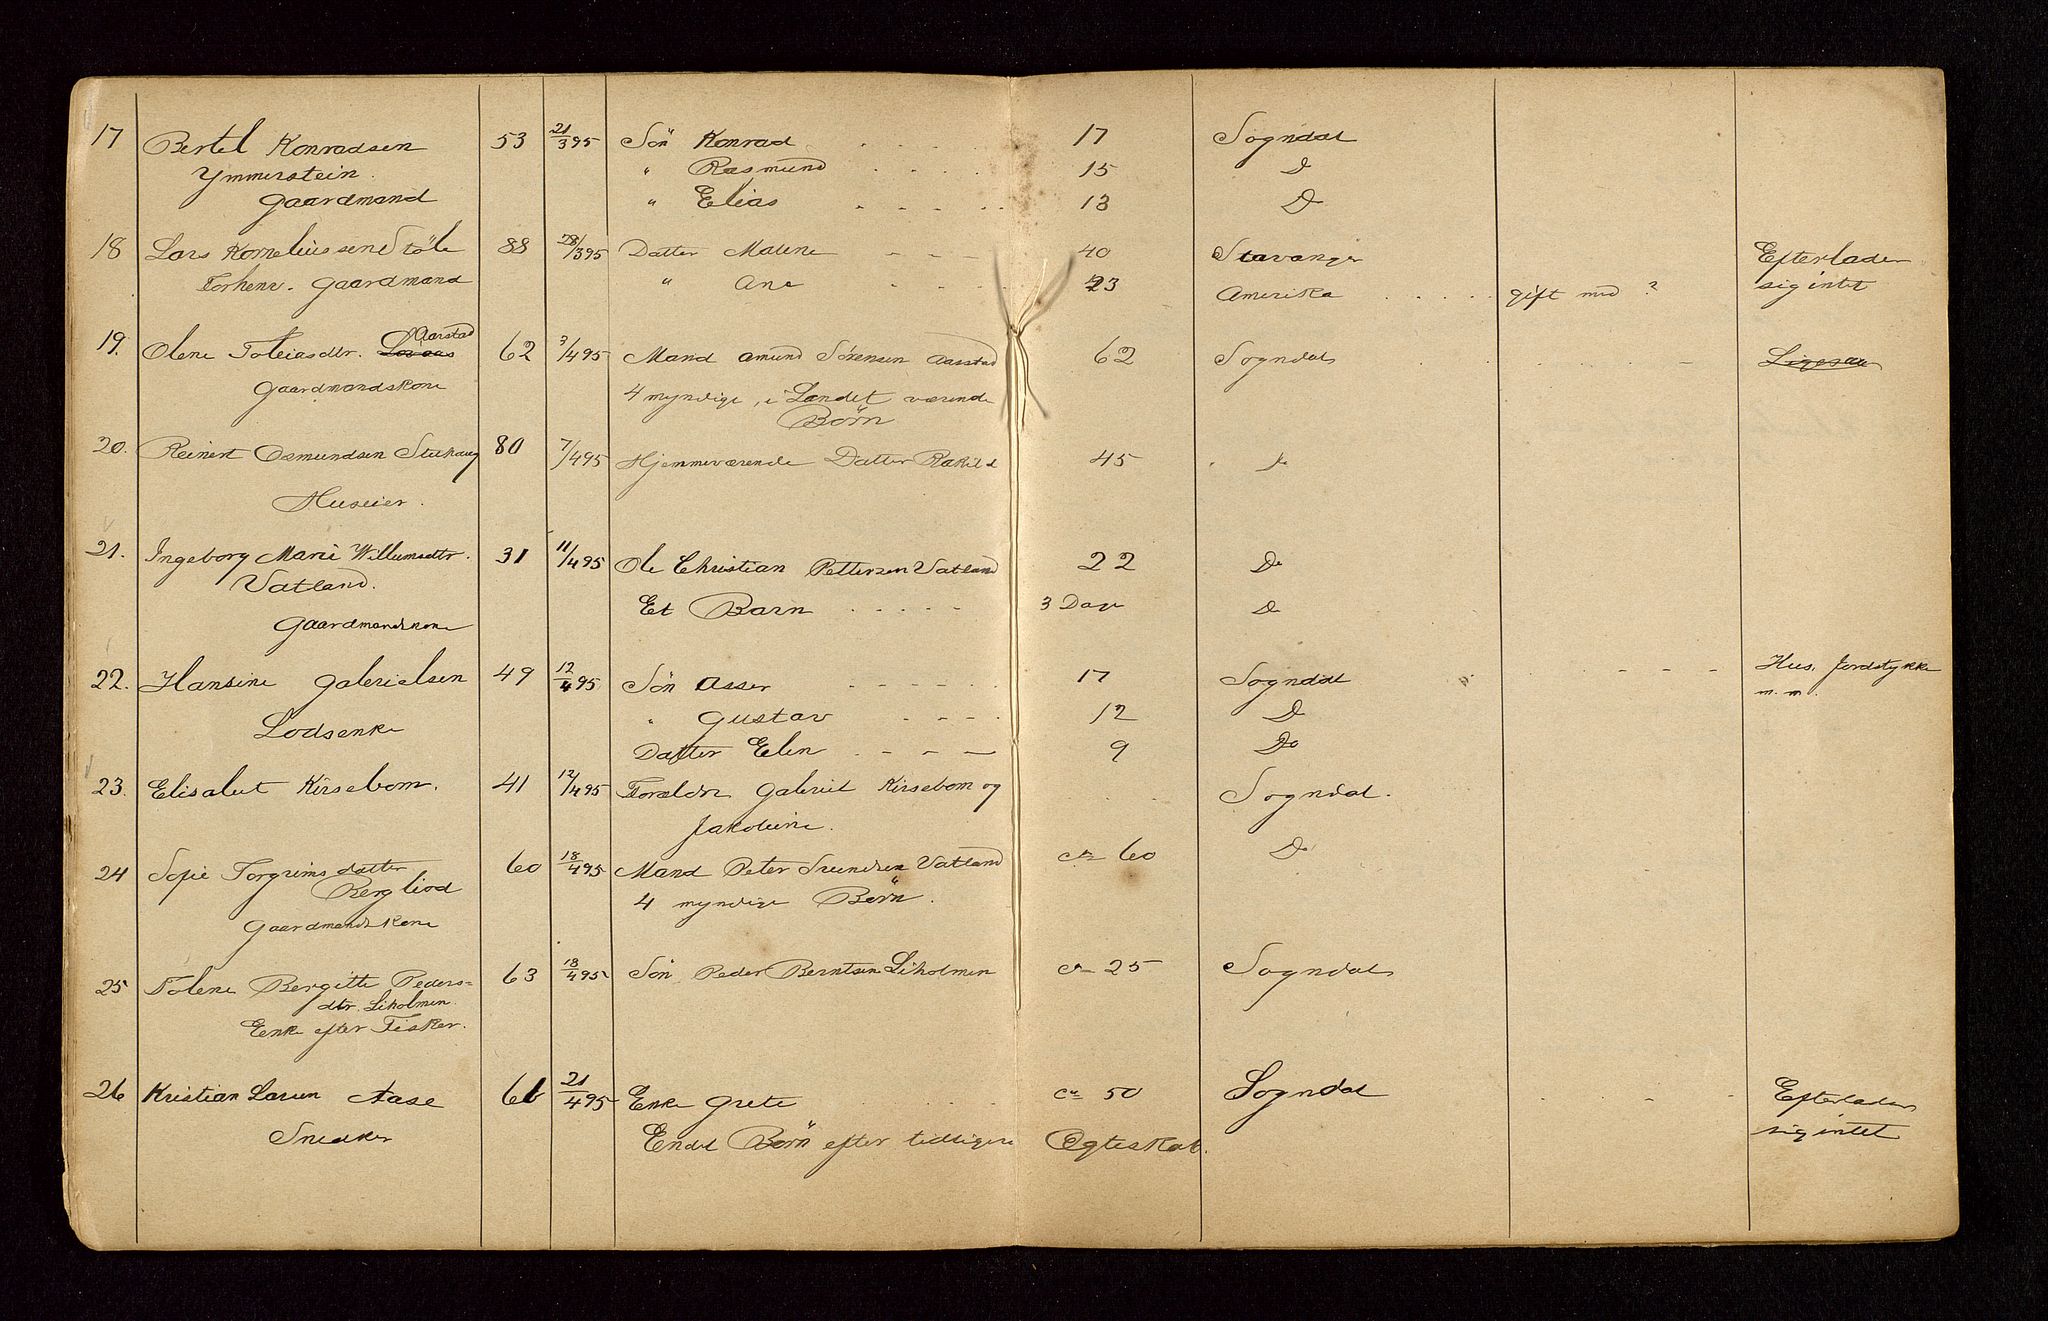 17 Bertel Konradsen 53 21/3 95 Sön Konrad 17 Sogndal
Ymmerstein. " Rasmund 15 D
Gaardmand " Elias 13 Do
18 Lars Korneliussen Stöle 88 28/3 95 Datter Malene 40 Stavanger Efterlader
Forhenv. Gaardmand " Ane 23 Amerika gift med ? sig intet
Aarstad
19. Olene Tobiasdtr. 62 3/4 95 Mand Amund Sörensen Aarstad 62 Sogndal
Gaardmandskone 4 myndige, i Landet værende
Börn
20. Reinert Osmundsen Stuhaug 80 7/4 95 Hjemmeværende Datter Rakild 45 Do
Huseier.
21. Ingeborg Marie Willumsdtr. 31 11/4 95 Ole Christian Pettersen Vatland 22 Do
Vatland. Et Barn 3 Dage Do
Gaardmandskone
22. Hansine Gabrielsen 49 12/4 95 Sön Asser 17 Sogndal Hus, Jordstykke
Lodsenke " Gustav 12 D m. m.
Datter Elen 9 Do
23. Elisabet Kirsebom. 41 12/4 95 Forældre Gabriel Kirsebom og Sogndal.
Jakobine.
24 Sofie Torgrimsdatter 60 18/4 95 Mand Peter Svendsen Vatland ca 60 Do
Bergliod 4 myndige Börn.
Gaardmandskone
25 Tolene Bergitte Peders- 63 18/4 95 Sön Peder Berntsen Liholmen ca 25 Sogndal
dtr. Liholmen.
Enke efter Fisker.
26 Kristian Larsen Aase 61 21/4 95 Enke Grete ca 50 Sogndal Efterlader
Snedker Endel Börn efter tidligere Egteskab. sig intet